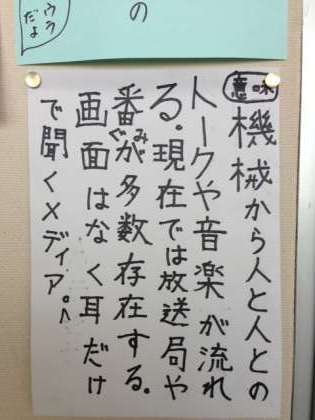 ウラ
だよ
の
意味
機械から人と人との
トークや音楽が流れ
る。現在では放送局や
番ぐみが多数存在する。
画面はなく耳だけ
で聞くメディア。^